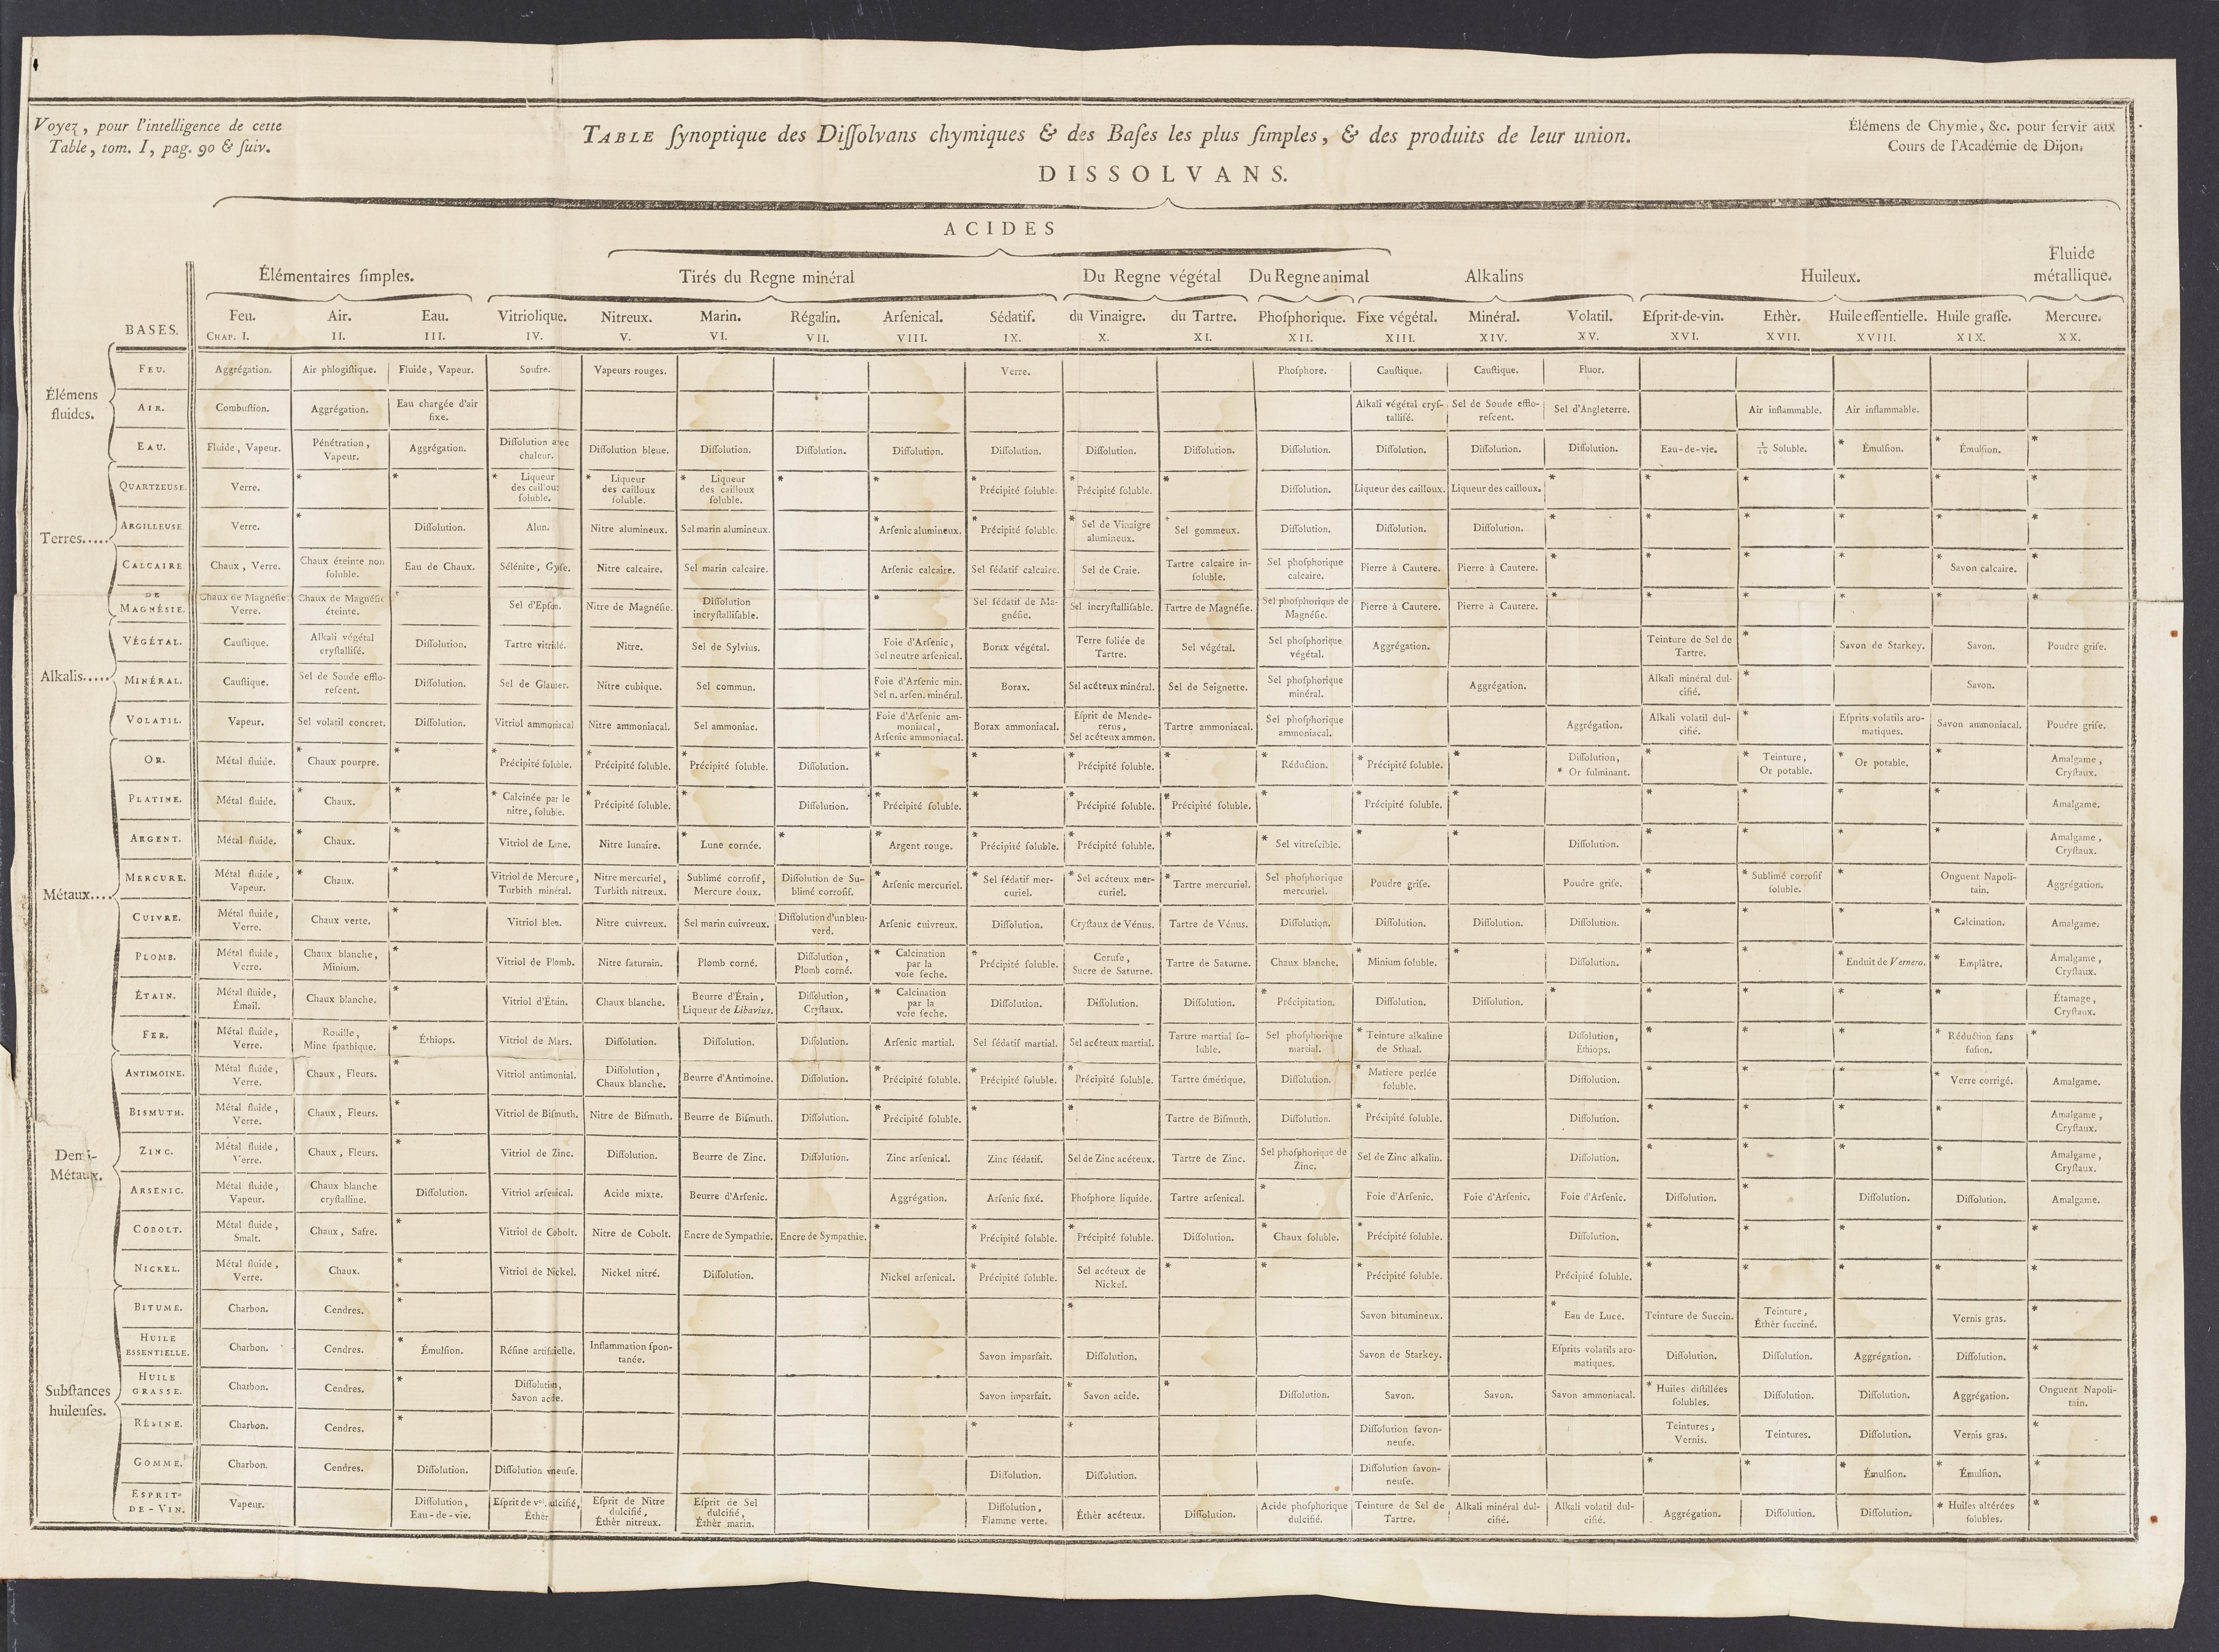 Voyez, pour l'intelligence de cette
Table, tom. I, pag. 90 & ſuiv.
TABLE ſynoptique des Diſſolvans chymiques & des Baſes les plus ſimples, & des produits de leur union.
Élémens de Chymie, &c. pour ſervir aux
Cours de l'Académie de Dijon.
DISSOLVANS.
ACIDES
Élémentaires ſimples. Tirés du Regne minéral Du Regne végétal Du Regne animal Alkalins Huileux. Fluide métallique.
BASES. Feu. Air. Eau. Vitriolique. Nitreux. Marin. Régalin. Arſenical. Sédatif. du Vinaigre. du Tartre. Phoſphorique. Fixe végétal. Minéral. Volatil. Eſprit-de-vin. Ethèr. Huile eſſentielle. Huile graſſe. Mercure.
CHAP. I. II. III. IV. V. VI. VII. VIII. IX. X. XI. XII. XIII. XIV. XV. XVI. XVII. XVIII. XIX. XX.
Élémens fluides.
FEU. Aggrégation. Air phlogiſtique. Fluide, Vapeur. Soufre. Vapeurs rouges. Verre. Phoſphore. Cauſtique. Cauſtique. Fluor.
AIR. Combuſtion. Aggrégation. Eau chargée d'air fixe. Alkali végétal cryſ-talliſé. Sel de Soude efflo-reſcent. Sel d'Angleterre. Air inflammable. Air inflammable.
EAU. Fluide, Vapeur. Pénétration, Vapeur. Aggrégation. Diſſolution avec chaleur. Diſſolution bleue. Diſſolution. Diſſolution. Diſſolution. Diſſolution. Diſſolution. Diſſolution. Diſſolution. Diſſolution. Diſſolution. Diſſolution. Eau-de-vie. 1/10 Soluble. * Émulſion. * Émulſion. *
Terres.....
QUARTZEUSE. Verre. * * * Liqueur des cailloux ſoluble. * Liqueur des cailloux ſoluble. * Liqueur des cailloux ſoluble. * * * Précipité ſoluble. * Précipité ſoluble. * Diſſolution. Liqueur des cailloux. Liqueur des cailloux. * * * * * *
ARGILLEUSE. Verre. * Diſſolution. Alun. Nitre alumineux. Sel marin alumineux. * Arſenic alumineux. * Précipité ſoluble. * Sel de Vinaigre alumineux. * Sel gommeux. Diſſolution. Diſſolution. Diſſolution. * * * * * *
CALCAIRE Chaux, Verre. Chaux éteinte non ſoluble. Eau de Chaux. Sélénite, Gyſe. Nitre calcaire. Sel marin calcaire. Arſenic calcaire. Sel ſédatif calcaire. Sel de Craie. Tartre calcaire in-ſoluble. Sel phoſphorique calcaire. Pierre à Cautere. Pierre à Cautere. * * * * * Savon calcaire. *
DE MAGNÉSIE. Chaux de Magnéſie Verre. Chaux de Magnéſie éteinte. * Sel d'Epſon. Nitre de Magnéſie. Diſſolution incryſtalliſable. * Sel ſédatif de Ma-gnéſie. Sel incryſtalliſable. Tartre de Magnéſie. Sel phoſphorique de Magnéſie. Pierre à Cautere. Pierre à Cautere. * * * * * *
Alkalis.....
VÉGÉTAL. Cauſtique. Alkali végétal cryſtalliſé. Diſſolution. Tartre vitriolé. Nitre. Sel de Sylvius. Foie d'Arſenic, Sel neutre arſenical. Borax végétal. Terre foliée de Tartre. Sel végétal. Sel phoſphorique végétal. Aggrégation. Teinture de Sel de Tartre. * Savon de Starkey. Savon. Poudre griſe.
MINÉRAL. Cauſtique. Sel de Soude efflo-reſcent. Diſſolution. Sel de Glauber. Nitre cubique. Sel commun. Foie d'Arſenic min. Sel n. arſen. minéral. Borax. Sel acéteux minéral. Sel de Seignette. Sel phoſphorique minéral. Aggrégation. Alkali minéral dul-cifié. * Savon.
VOLATIL. Vapeur. Sel volatil concret. Diſſolution. Vitriol ammoniacal Nitre ammoniacal. Sel ammoniac. Foie d'Arſenic am-moniacal, Arſenic ammoniacal. Borax ammoniacal. Eſprit de Mende-rerus, Sel acéteux ammon. Tartre ammoniacal. Sel phoſphorique ammoniacal. Aggrégation. Alkali volatil dul-cifié. * Eſprits volatils aro-matiques. Savon ammoniacal. Poudre griſe.
Métaux....
OR. Métal fluide. * Chaux pourpre. * * Précipité ſoluble. * Précipité ſoluble. * Précipité ſoluble. Diſſolution. * * * Précipité ſoluble. * * Réduction. * Précipité ſoluble. * Diſſolution, * Or fulminant. * * Teinture, Or potable. * Or potable. * Amalgame, Cryſtaux.
PLATINE. Métal fluide. * Chaux. * * Calcinée par le nitre, ſoluble. * Précipité ſoluble. * Diſſolution. * Précipité ſoluble. * * Précipité ſoluble. * Précipité ſoluble. * * Précipité ſoluble. * * * * * Amalgame.
ARGENT. Métal fluide. * Chaux. * Vitriol de Lune. Nitre lunaire. * Lune cornée. * * Argent rouge. * Précipité ſoluble. * Précipité ſoluble. * * Sel vitreſcible. * * Diſſolution. * * * * Amalgame, Cryſtaux.
MERCURE. Métal fluide, Vapeur. * Chaux. * Vitriol de Mercure, Turbith minéral. Nitre mercuriel, Turbith nitreux. Sublimé corroſif, Mercure doux. Diſſolution de Su-blimé corroſif. * Arſenic mercuriel. * Sel ſédatif mer-curiel. * Sel acéteux mer-curiel. * Tartre mercuriel. Sel phoſphorique mercuriel. Poudre griſe. Poudre griſe. * * Sublimé corroſif ſoluble. * Onguent Napoli-tain. Aggrégation.
CUIVRE. Métal fluide, Verre. Chaux verte. * Vitriol bleu. Nitre cuivreux. Sel marin cuivreux. Diſſolution d'un bleu-verd. Arſenic cuivreux. Diſſolution. Cryſtaux de Vénus. Tartre de Vénus. Diſſolution. Diſſolution. Diſſolution. Diſſolution. * * * * Calcination. Amalgame.
PLOMB. Métal fluide, Verre. Chaux blanche, Minium. * Vitriol de Plomb. Nitre ſaturnin. Plomb corné. Diſſolution, Plomb corné. * Calcination par la voie ſeche. * Précipité ſoluble. Ceruſe, Sucre de Saturne. Tartre de Saturne. Chaux blanche. * Minium ſoluble. * Diſſolution. * * * Enduit de Vernero. * Emplâtre. Amalgame, Cryſtaux.
ÉTAIN. Métal fluide, Émail. Chaux blanche. * Vitriol d'Étain. Chaux blanche. Beurre d'Étain, Liqueur de Libavius. Diſſolution, Cryſtaux. * Calcination par la voie ſeche. Diſſolution. Diſſolution. Diſſolution. * Précipitation. Diſſolution. Diſſolution. * * * * * Étamage, Cryſtaux.
FER. Métal fluide, Verre. Rouille, Mine ſpathique. * Éthiops. Vitriol de Mars. Diſſolution. Diſſolution. Diſſolution. Arſenic martial. Sel ſédatif martial. Sel acéteux martial. Tartre martial ſo-luble. Sel phoſphorique martial. * Teinture alkaline de Sthaal. Diſſolution, Éthiops. * * * * Réduction ſans fuſion. *
Demi-Métaux.
ANTIMOINE. Métal fluide, Verre. Chaux, Fleurs. * Vitriol antimonial. Diſſolution, Chaux blanche. Beurre d'Antimoine. Diſſolution. * Précipité ſoluble. * Précipité ſoluble. * Précipité ſoluble. Tartre émétique. Diſſolution. * Matiere perlée ſoluble. Diſſolution. * * * * Verre corrigé. Amalgame.
BISMUTH. Métal fluide, Verre. Chaux, Fleurs. * Vitriol de Biſmuth. Nitre de Biſmuth. Beurre de Biſmuth. Diſſolution. * Précipité ſoluble. * * Tartre de Biſmuth. Diſſolution. * Précipité ſoluble. Diſſolution. * * * * Amalgame, Cryſtaux.
ZINC. Métal fluide, Verre. Chaux, Fleurs. * Vitriol de Zinc. Diſſolution. Beurre de Zinc. Diſſolution. Zinc arſenical. Zinc ſédatif. Sel de Zinc acéteux. Tartre de Zinc. Sel phoſphorique de Zinc. Sel de Zinc alkalin. Diſſolution. * * * * Amalgame, Cryſtaux.
ARSENIC. Métal fluide, Vapeur. Chaux blanche cryſtalline. Diſſolution. Vitriol arſenical. Acide mixte. Beurre d'Arſenic. Aggrégation. Arſenic fixé. Phoſphore liquide. Tartre arſenical. * Foie d'Arſenic. Foie d'Arſenic. Foie d'Arſenic. Diſſolution. * Diſſolution. Diſſolution. Amalgame.
COBOLT. Métal fluide, Smalt. Chaux, Safre. * Vitriol de Cobolt. Nitre de Cobolt. Encre de Sympathie. Encre de Sympathie. * * Précipité ſoluble. * Précipité ſoluble. Diſſolution. * Chaux ſoluble. * Précipité ſoluble. Diſſolution. * * * * *
NICKEL. Métal fluide, Verre. Chaux. * Vitriol de Nickel. Nickel nitré. Diſſolution. Nickel arſenical. * Précipité ſoluble. Sel acéteux de Nickel. * * * Précipité ſoluble. Précipité ſoluble. * * * * *
Subſtances huileuſes.
BITUME. Charbon. Cendres. * * Savon bitumineux. * Eau de Luce. Teinture de Succin. Teinture, Éthèr ſucciné. Vernis gras. *
HUILE ESSENTIELLE. Charbon. Cendres. * Émulſion. Réſine artificielle. Inflammation ſpon-tanée. Savon imparfait. Diſſolution. Savon de Starkey. Eſprits volatils aro-matiques. Diſſolution. Diſſolution. Aggrégation. Diſſolution. *
HUILE GRASSE. Charbon. Cendres. * Diſſolution, Savon acide. Savon imparfait. * Savon acide. * Diſſolution. Savon. Savon. Savon ammoniacal. * Huiles diſtillées ſolubles. Diſſolution. Diſſolution. Aggrégation. Onguent Napoli-tain.
RÉSINE. Charbon. Cendres. * * * Diſſolution ſavon-neuſe. Teintures, Vernis. Teintures. Diſſolution. Vernis gras. *
GOMME. Charbon. Cendres. Diſſolution. Diſſolution vineuſe. Diſſolution. Diſſolution. Diſſolution ſavon-neuſe. * * * Émulſion. * Émulſion. *
ESPRIT-DE-VIN. Vapeur. Diſſolution, Eau-de-vie. Eſprit de dulcifié, Éthèr Eſprit de Nitre dulcifié, Éthèr nitreux. Eſprit de Sel dulcifié, Éthèr marin. Diſſolution, Flamme verte. Éthèr acéteux. Diſſolution. Acide phoſphorique dulcifié. Teinture de Sel de Tartre. Alkali minéral dul-cifié. Alkali volatil dul-cifié. Aggrégation. Diſſolution. Diſſolution. * Huiles altérées ſolubles. *